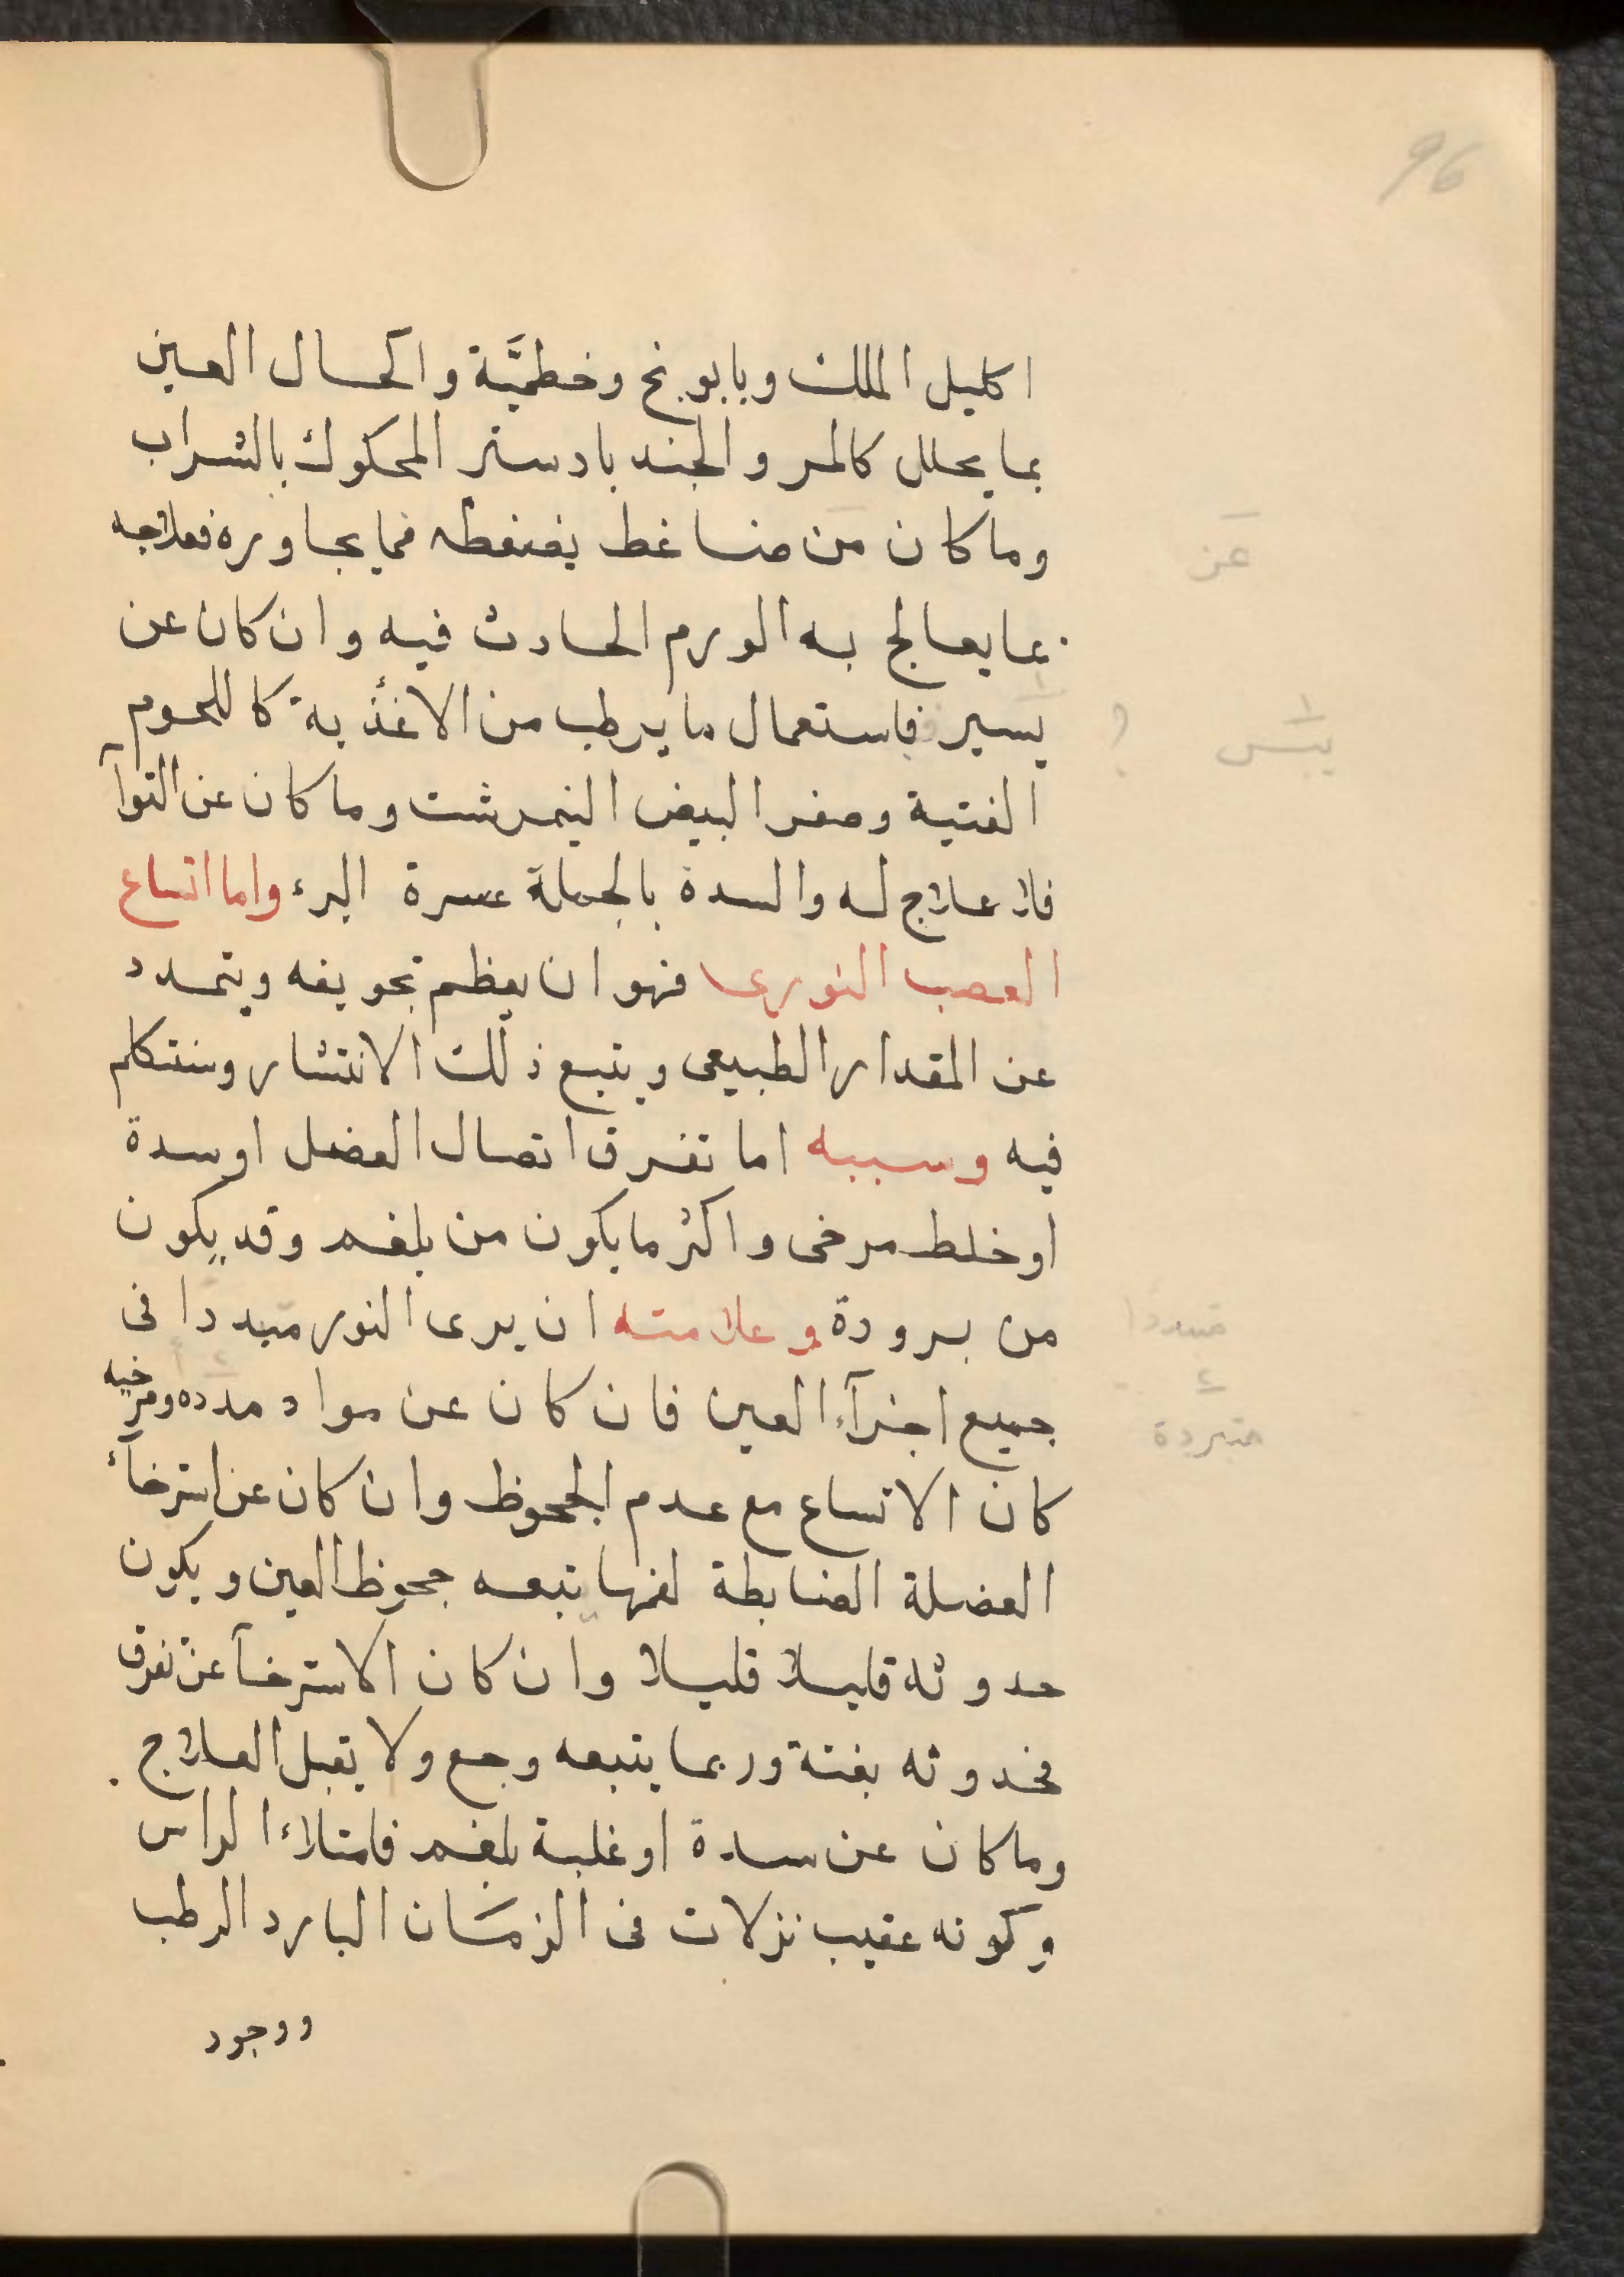 96
اكليل الملك وبابونج وخطميَّة واكحال العين
بما يحلل كالمر والجندبادستر المحكوك بالشراب
وما كان من ضاغط يضغطه فما يجاوره فعلاجه
بما يعالج به الورم الحادث فيه وان كان عن
يسير فاستعمال ما يرطب من الاغذية كاللحوم
الفتية وصفر البيض النيمرشت وما كان عن التوآ
فلا علاج له والسدة بالجملة عسرة البرء واما اتساع
العصب النورى فهو ان يعظم تجويفه ويتمدد
عن المقدار الطبيعى ويتبع ذلك الانتشار وسنتكلم
فيه وسببه اما تفرق اتصال العضل او سدة
او خلط مرخى واكثر ما يكون من بلغم وقد يكون
من برودة وعلامته ان يرى النور مبددا فى
جميع اجزآء العين فان كان عن مواد مدده ومرخيه
كان الاتساع مع عدم الجحوظ وان كان عن استرخآء
العضلة الضابطة لفمها تبعه جحوظ العين ويكون
حدوثه قليلا قليلا وان كان الاسترخآ عن تفرق
فحدوثه بغتة وربما يتبعه وجع ولا يقبل العلاج
وما كان عن سدة او غلبة بلغم فامتلاء الراس
وكونه عقيب نزلات فى الزمان البارد الرطب
ووجود
عن
يبس ؟
متبددا
مبردة